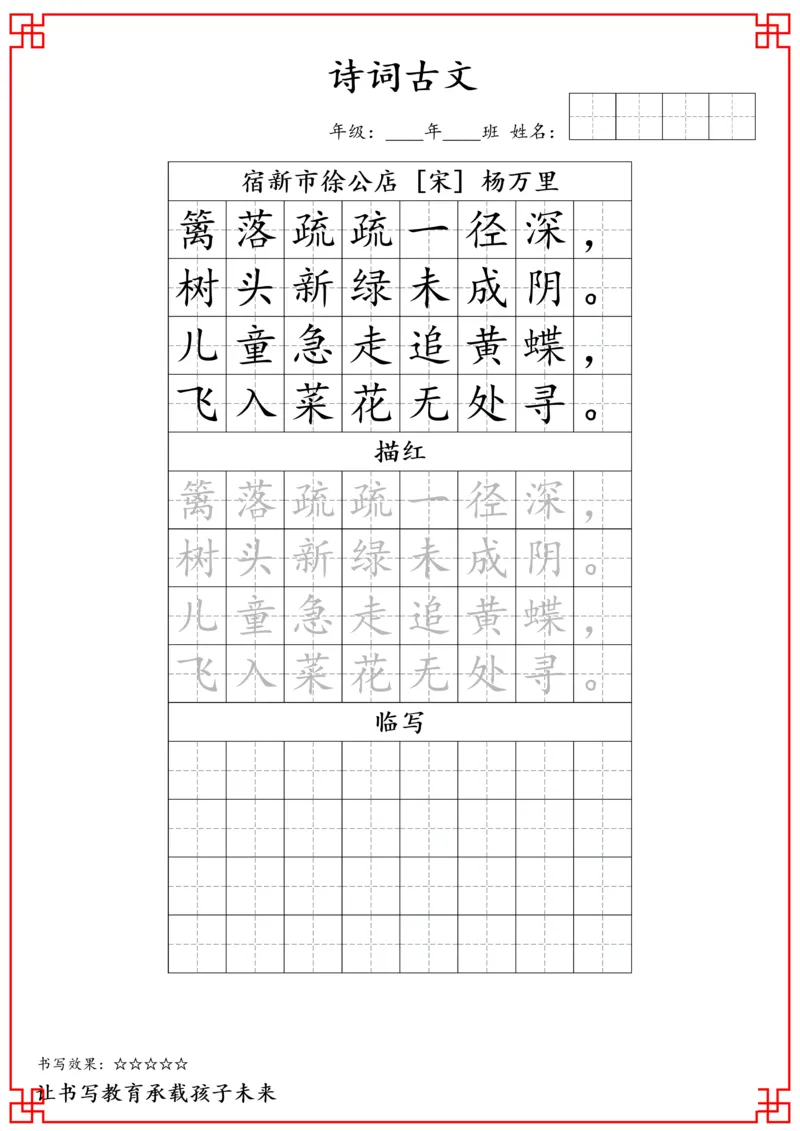 诗词古文
年级：____年____班 姓名：
宿新市徐公店［宋］杨万里
篱落疏疏一径深，
树头新绿未成阴。
儿童急走追黄蝶，
飞入菜花无处寻。
描红
篱落疏疏一径深，
树头新绿未成阴。
儿童急走追黄蝶，
飞入菜花无处寻。
临写
书写效果：☆☆☆☆☆
让书写教育承载孩子未来